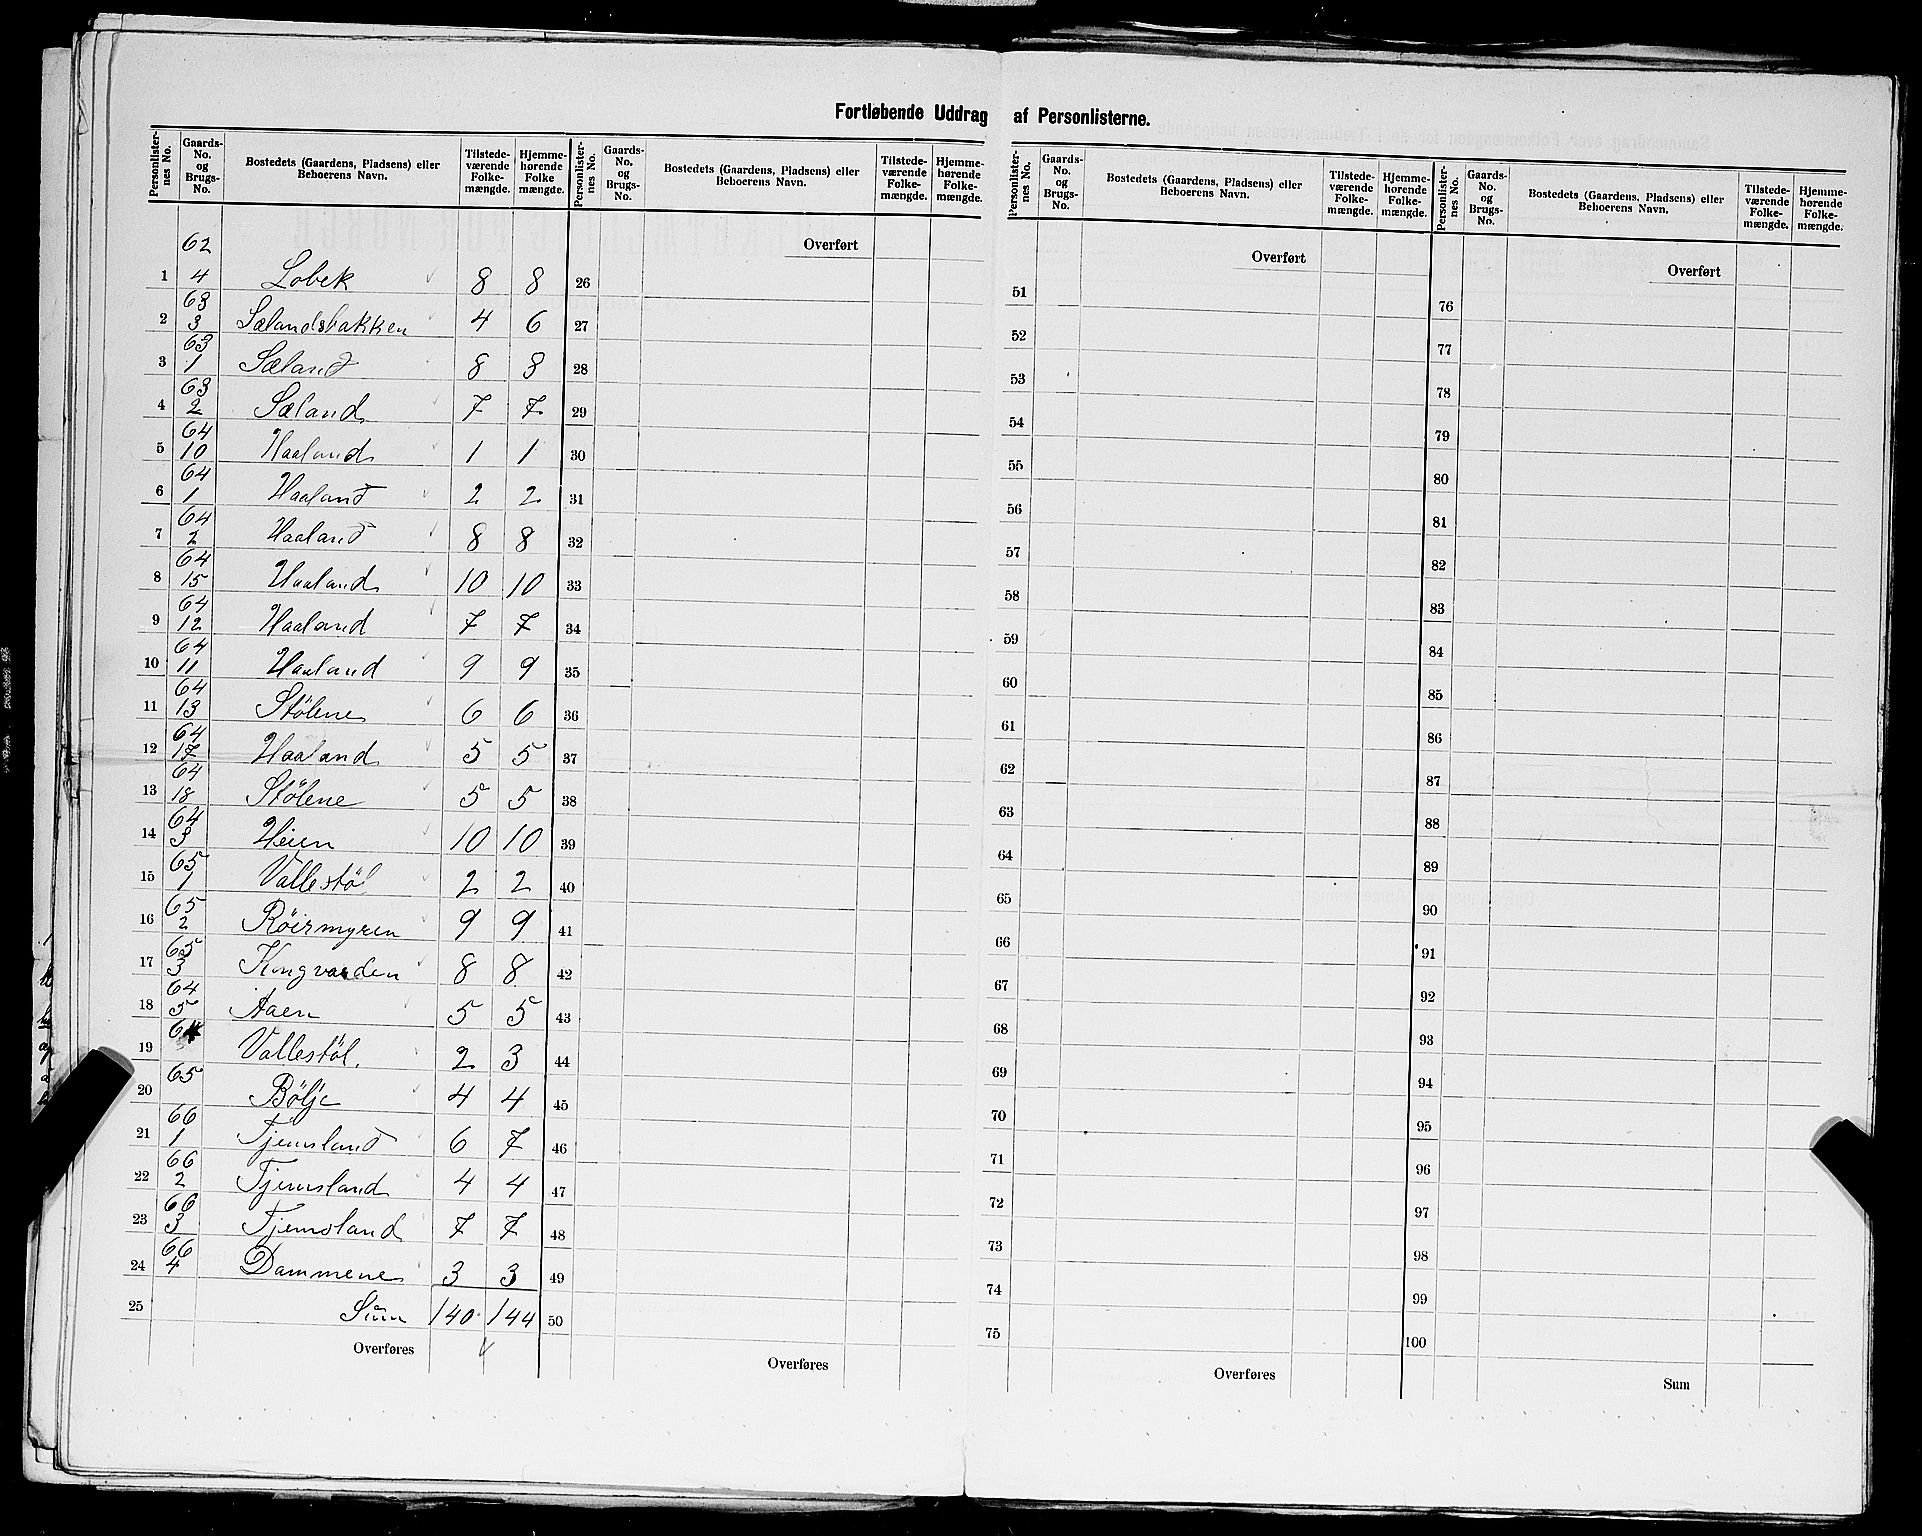 Fortløbende Uddrag af Personlisterne.
Personlister-nes No. | Gaards-No. og Brugs-No. | Bostedets (Gaardens, Pladsens) eller Beboerens Navn. | Tilstede-værende Folke-mængde. | Hjemme-hørende Folke mængde.
1 62/4 Lobek 8 8
2 63/3 Sælandsbakken 4 6
3 63/1 Sæland 8 8
4 63/2 Sæland 7 7
5 64/10 Haaland 1 1
6 64/1 Haaland 2 2
7 64/2 Haaland 8 8
8 64/15 Haaland 10 10
9 64/12 Haaland 7 7
10 64/11 Haaland 9 9
11 64/13 Stölene 6 6
12 64/17 Haaland 5 5
13 64/18 Stölene 5 5
14 64/3 Heien 10 10
15 65/1 Vallestöl 2 2
16 65/2 Röirmyren 9 9
17 65/3 Kongvarden 8 8
18 64/5 Aaen 5 5
19 Vallestöl. 2 3
20 65 Bölje 4 4
21 66/1 Tjemsland 6 7
22 66/2 Tjemsland 4 4
23 66/3 Tjemsland 7 7
24 66/4 Dammene 3 3
25 Sum 140 144
Overføres
Personlister-nes No. | Gaards-No. og Brugs-No. | Bostedets (Gaardens, Pladsens) eller Beboerens Navn. | Tilstede-værende Folke-mængde. | Hjemme-hørende Folke-mængde.
Overført
26
27
28
29
30
31
32
33
34
35
36
37
38
39
40
41
42
43
44
45
46
47
48
49
50
Overføres
Personlister-nes No. | Gaards-No. og Brugs-No. | Bostedets (Gaardens, Pladsens) eller Beboerens Navn. | Tilstede-værende Folke-mængde. | Hjemme-hørende Folke-mængde.
Overført
51
52
53
54
55
56
57
58
59
60
61
62
63
64
65
66
67
68
69
70
71
72
73
74
75
Overføres
Personlister-nes No. | Gaards-No. og Brugs-No. | Bostedets (Gaardens, Pladsens) eller Beboerens Navn. | Tilstede-værende Folke-mængde. | Hjemme-hørende Folke-mængde.
Overført
76
77
78
79
80
81
82
83
84
85
86
87
88
89
90
91
92
93
94
95
96
97
98
99
100
Sum